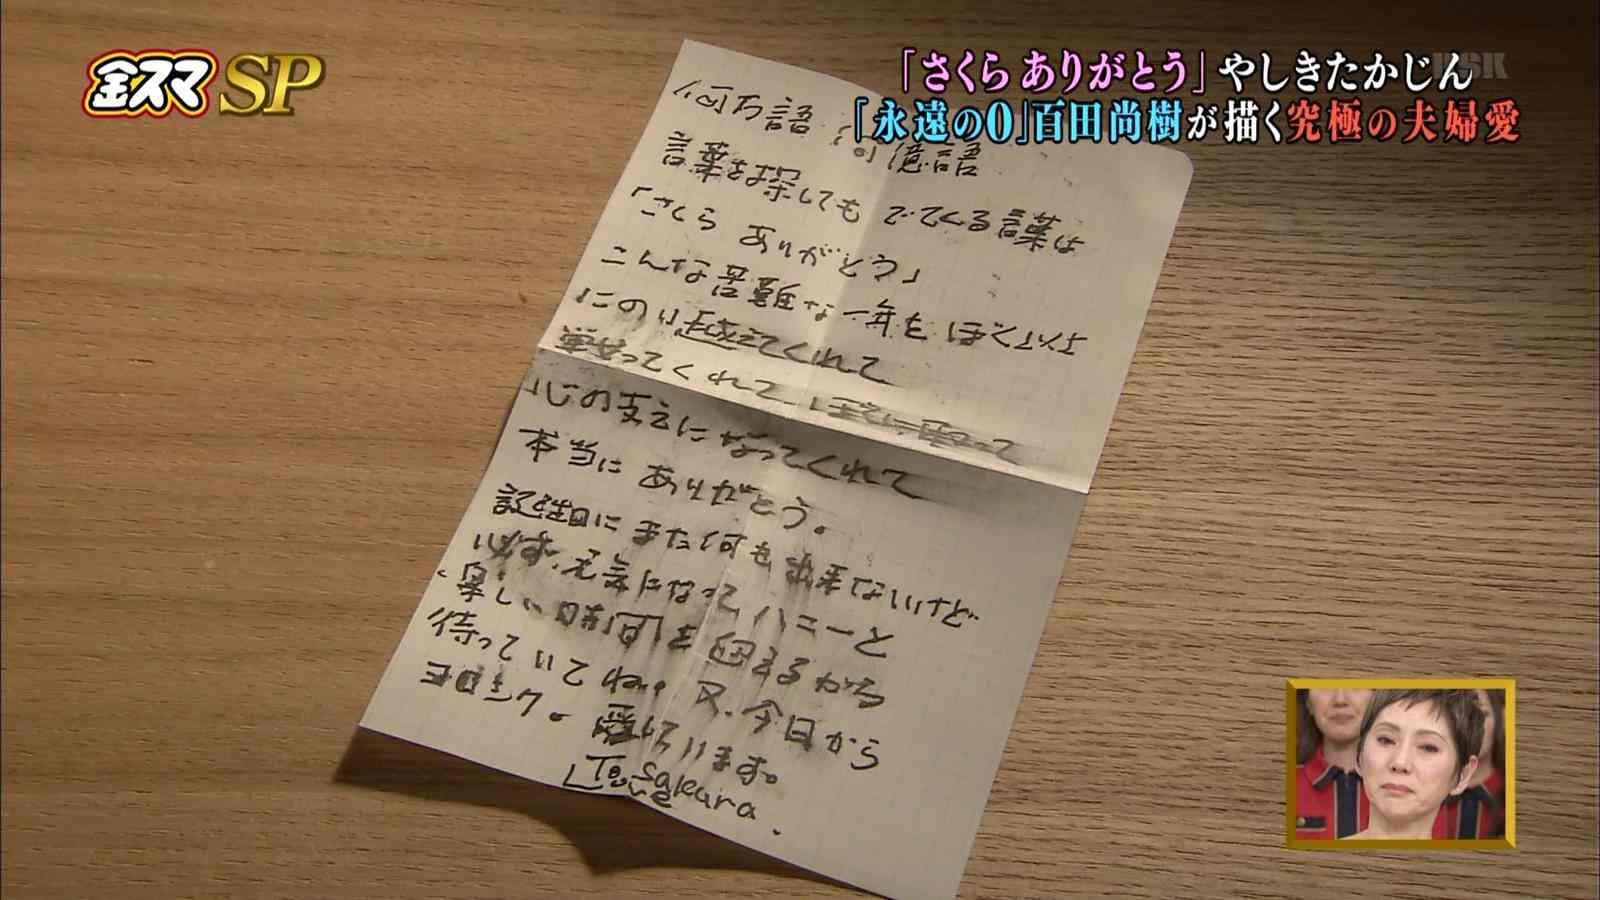 金スマSP
「さくら ありがとう」やしきたかじん
「永遠の0」百田尚樹が描く究極の夫婦愛
何万語 何億語
言葉を探しても でてくる言葉は
「さくら ありがとう」
こんな苦難な一年を ぼくだけ
にのり越えてくれて
くれて
心の支えになってくれて
本当に ありがとう。
誕生日にまた何も出来てないけど
必ず、元気になって ハニーと
楽しい時間を迎えるから
待っていてね。又、今日から
ヨロシク。愛しています。
To sakura
Love